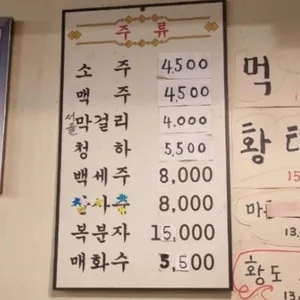 주류
소주 4,500
맥주 4,500
서울 막걸리 4.000
청하 5,500
백세주 8,000
8,000
복분자 15,000
매화수 5,500
먹
황태
15
마
13,
황도
13